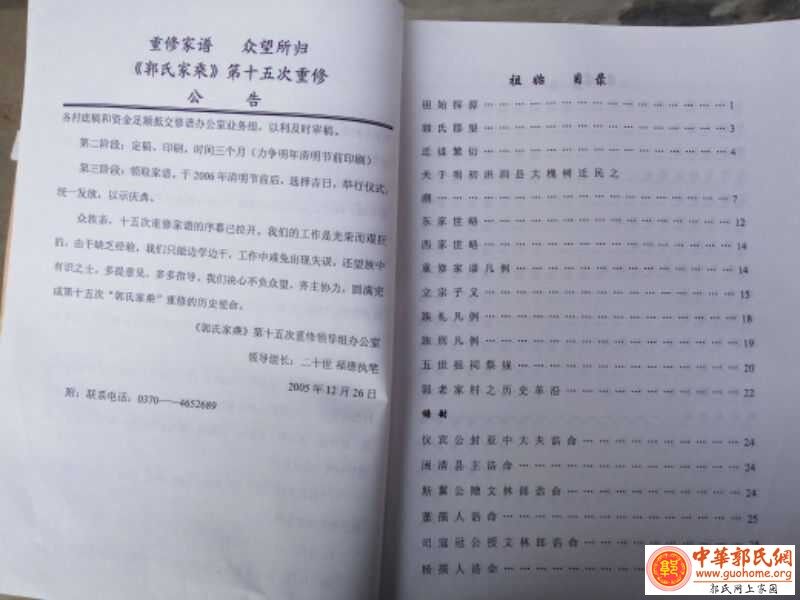 重修家谱 众望所归
《郭氏家乘》第十五次重修
公 告
各村底稿和资金足额抵交修谱办公室业务组，以利及时审稿。
第二阶段：定稿、印刷，时间三个月（力争明年清明节前印刷）
第三阶段：领取家谱，于2006年清明节前后，选择吉日，举行仪式，
统一发放，以示庆典。
众族亲，十五次重修家谱的序幕已拉开，我们的工作是光荣而艰巨
的，由于缺乏经验，我们只能边学边干，工作中难免出现失误，还望族中
有识之士，多提意见，多多指导，我们决心不负众望，齐主协力，圆满完
成第十五次“郭氏家乘”重修的历史使命。
《郭氏家乘》第十五次重修领导组办公室
领导组长：二十世 福德执笔
2005年12月26日
附：联系电话：0370——4652689
祖临 目录
祖始探源 …………………… 1
郭氏郡望 …………………… 3
迁徙繁衍 …………………… 4
关于明初洪洞县大槐树迁民之
…………………… 7
东家世略 …………………… 12
西家世略 …………………… 14
重修家谱凡例 …………………… 14
立宗子义 …………………… 15
族礼凡例 …………………… 18
族居凡例 …………………… 19
五世祖祠祭规 …………………… 20
郭老家村之历史革沿 …………………… 22
诰封
仪宾公封亚中大夫诰命 …………………… 24
清县主诰命 …………………… 24
公赠文林郎诰命 …………………… 24
董孺人诰命 …………………… 25
司寇冠公授文林郎诰命 ……………………
杨孺人诰命 ……………………
中華郭氏網
www.guohome.org
郭氏网上家园